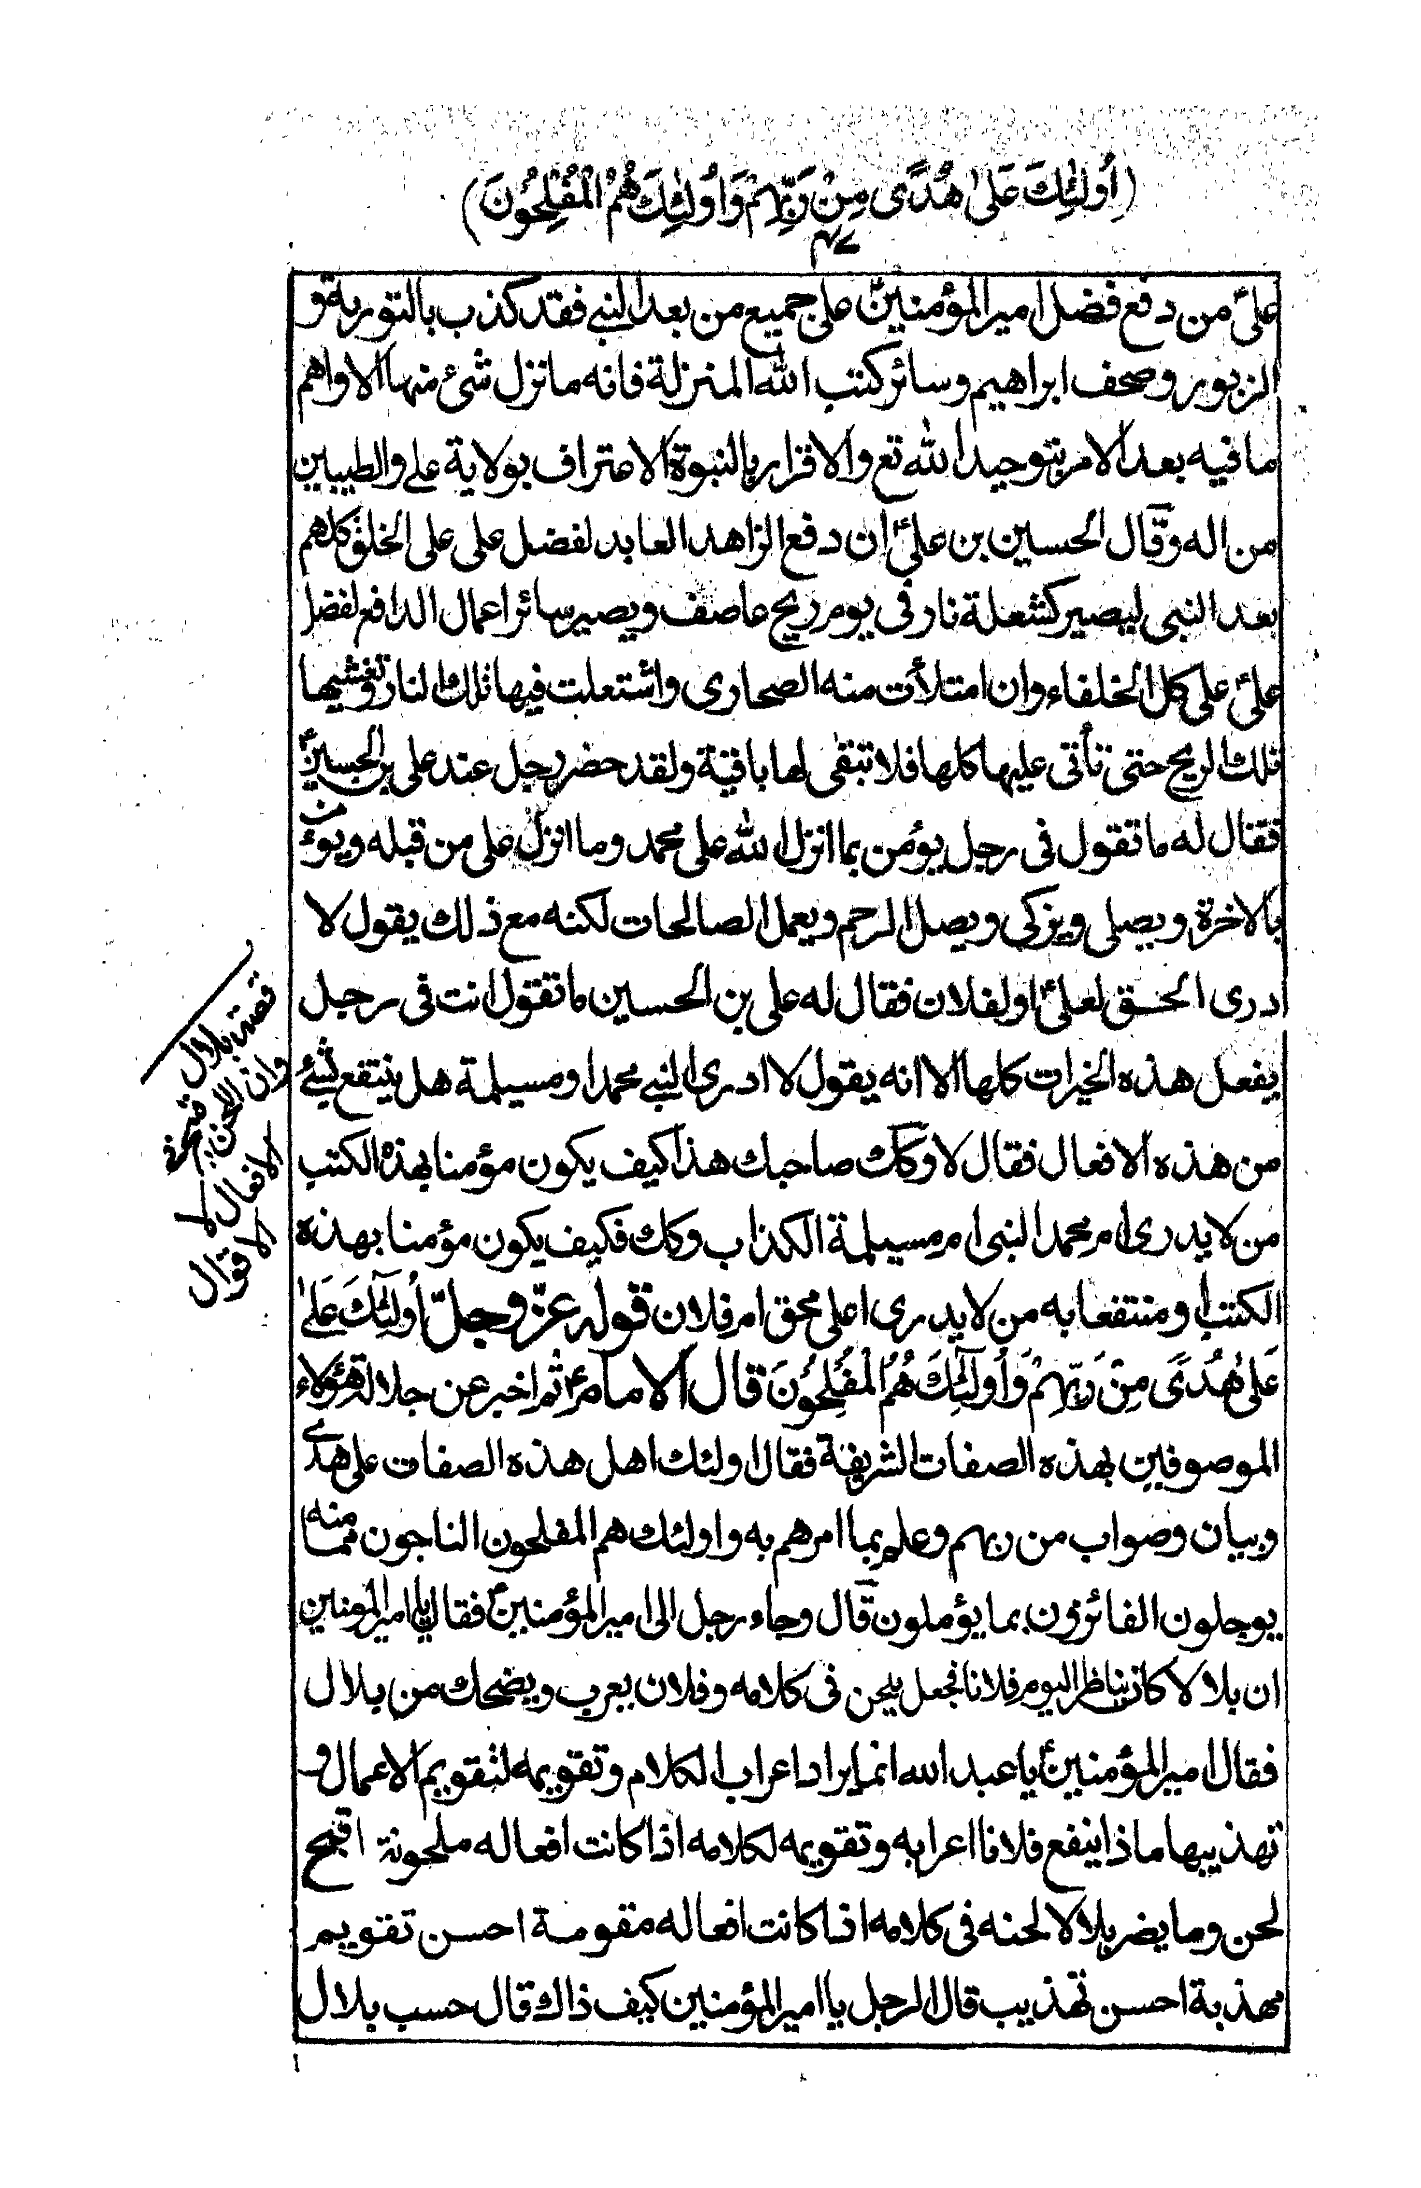 (اُولٰئِكَ عَلىٰ هُدًى مِنْ رَبِّهِمْ وَاُولٰئِكَ هُمُ الْمُفْلِحُونَ)
علیؑ من دفع فضل امير المؤمنينؑ على جميع من بعد النبى فقد كذب بالتورية و
الزبور وصحف ابراهيم وسائر كتب الله المنزلة فانه ما نزل شئ منها الا واهم
ما فيه بعد الامر بتوحيد الله تع والاقرار بالنبوة الاعتراف بولاية على والطيبين
من اله وقال الحسين بن علىؑ ان دفع الزاهد العابد لفضل على على الخلق كلهم
بعد النبى ليصير كشعلة نار فى يوم ريح عاصف ويصير سائر اعمال الدافع لفضل
علىؑ على كل الخلفاء وان امتلأت منه الصحارى واشتعلت فيها تلك النار وتغشيها
تلك الريح حتى تأتى عليها كلها فلا تبقى لها باقية ولقد حضر رجل عند على بن الحسينؑ
فقال له ما تقول فى رجل يؤمن بما انزل الله على محمد وما انزل على من قبله ويؤمن
بالاخرة ويصلى ويزكى ويصل الرحم ويعمل الصالحات لكنه مع ذلك يقول لا
ادرى الحق لعلىؑ او لفلان فقال له على بن الحسين ما تقول انت فى رجل
يفعل هذه الخيرات كلها الا انه يقول لا ادرى النبى محمد او مسيلمة هل ينتفع بشئ
من هذه الافعال فقال لا وكك صاحبك هذا كيف يكون مؤمنا بهذه الكتب
من لا يدرى ام محمد النبى ام مسيلمة الكذاب وكك فكيف يكون مؤمنا بهذه
الكتب او منتفعا به من لا يدرى اعلى محق ام فلان قوله عزّ وجلّ اُولٰئِكَ عَلىٰ
عَلىٰ هُدًى مِنْ رَبِّهِمْ وَاُولٰئِكَ هُمُ الْمُفْلِحُونَ قال الامامؑ ثم اخبر عن جلالة هؤلاء
الموصوفين بهذه الصفات الشريفة فقال اولئك اهل هذه الصفات على هدى
وبيان وصواب من ربهم وعلم بما امرهم به واولئك هم المفلحون الناجون مما منه
يوجلون الفائزون بما يؤملون قال وجاء رجل الى امير المؤمنينؑ فقال يا امير المؤمنين
ان بلالا كان يناظر اليوم فلانا فجعل يلحن فى كلامه وفلان يعرب ويضحك من بلال
فقال امير المؤمنينؑ يا عبد الله انما يراد اعراب الكلام وتقويمه لتقويم الاعمال و
تهذيبها ماذا ينفع فلانا اعرابه وتقويمه لكلامه اذا كانت افعاله ملحونة اقبح
لحن وما يضر بلالا لحنه فى كلامه اذا كانت افعاله مقومة احسن تقويم
مهذبة احسن تهذيب قال الرجل يا امير المؤمنين كيف ذاك قال حسب بلال
قصة بلال
وان اللحن
قبح فى
الافعال لا
الاقوال